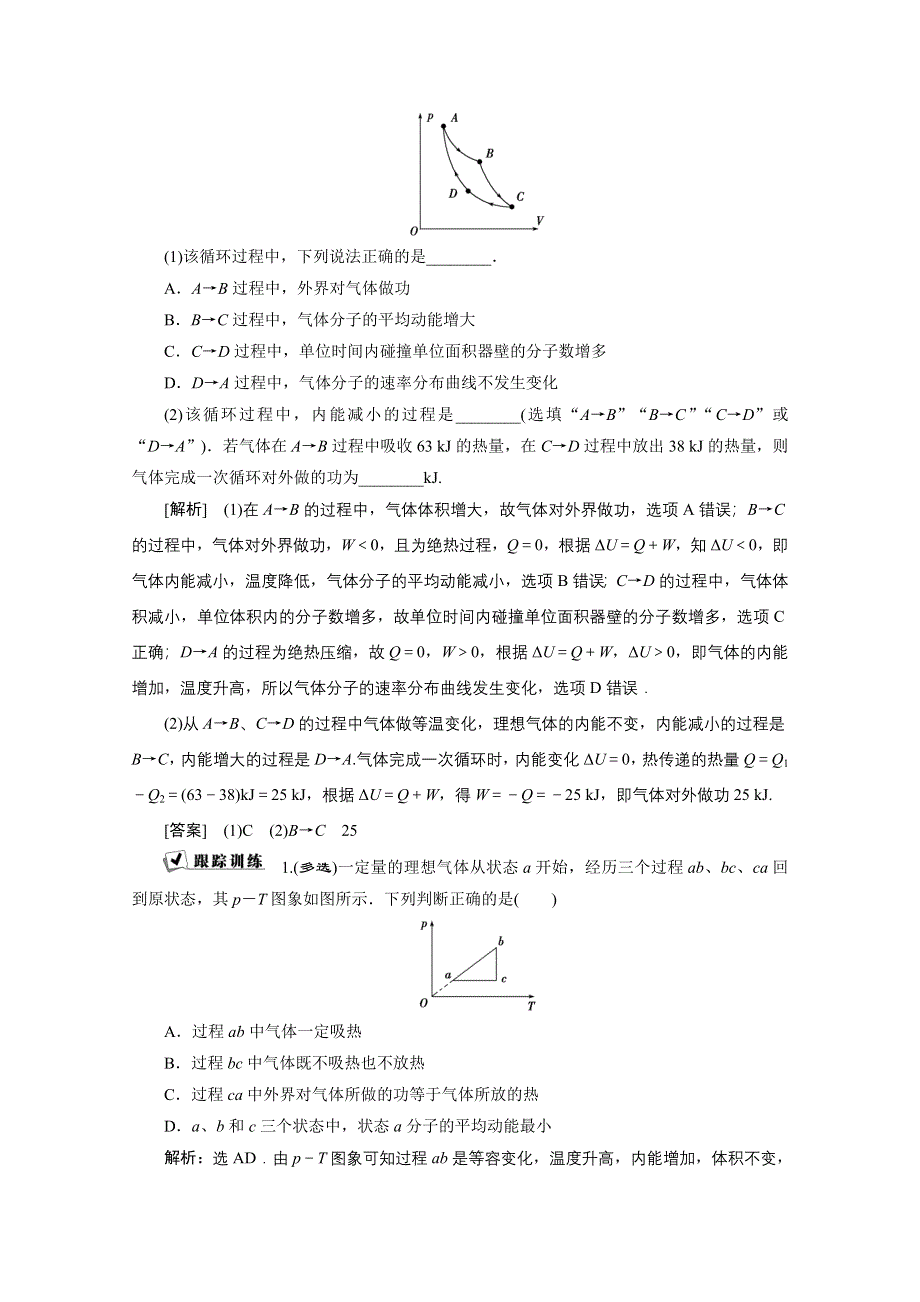 p A
B
D C
O V
(1)该循环过程中，下列说法正确的是________．
A．A→B 过程中，外界对气体做功
B．B→C 过程中，气体分子的平均动能增大
C．C→D 过程中，单位时间内碰撞单位面积器壁的分子数增多
D．D→A 过程中，气体分子的速率分布曲线不发生变化
(2)该循环过程中，内能减小的过程是________(选填“A→B”“B→C”“C→D”或
“D→A”)．若气体在 A→B 过程中吸收 63 kJ 的热量，在 C→D 过程中放出 38 kJ 的热量，则
气体完成一次循环对外做的功为________kJ.
[解析] (1)在 A→B 的过程中，气体体积增大，故气体对外界做功，选项 A 错误；B→C
的过程中，气体对外界做功，W＜0，且为绝热过程，Q＝0，根据 ΔU＝Q＋W，知 ΔU＜0，即
气体内能减小，温度降低，气体分子的平均动能减小，选项 B 错误；C→D 的过程中，气体体
积减小，单位体积内的分子数增多，故单位时间内碰撞单位面积器壁的分子数增多，选项 C
正确；D→A 的过程为绝热压缩，故 Q＝0，W＞0，根据 ΔU＝Q＋W，ΔU＞0，即气体的内能
增加，温度升高，所以气体分子的速率分布曲线发生变化，选项 D 错误．
(2)从 A→B、C→D 的过程中气体做等温变化，理想气体的内能不变，内能减小的过程是
B→C，内能增大的过程是 D→A.气体完成一次循环时，内能变化 ΔU＝0，热传递的热量 Q＝Q₁
－Q₂＝(63－38)kJ＝25 kJ，根据 ΔU＝Q＋W，得 W＝－Q＝－25 kJ，即气体对外做功 25 kJ.
[答案] (1)C (2)B→C 25
跟踪训练 1.(多选)一定量的理想气体从状态 a 开始，经历三个过程 ab、bc、ca 回
到原状态，其 p－T 图象如图所示．下列判断正确的是( )
p b
a c
O T
A．过程 ab 中气体一定吸热
B．过程 bc 中气体既不吸热也不放热
C．过程 ca 中外界对气体所做的功等于气体所放的热
D．a、b 和 c 三个状态中，状态 a 分子的平均动能最小
解析：选 AD．由 p－T 图象可知过程 ab 是等容变化，温度升高，内能增加，体积不变，